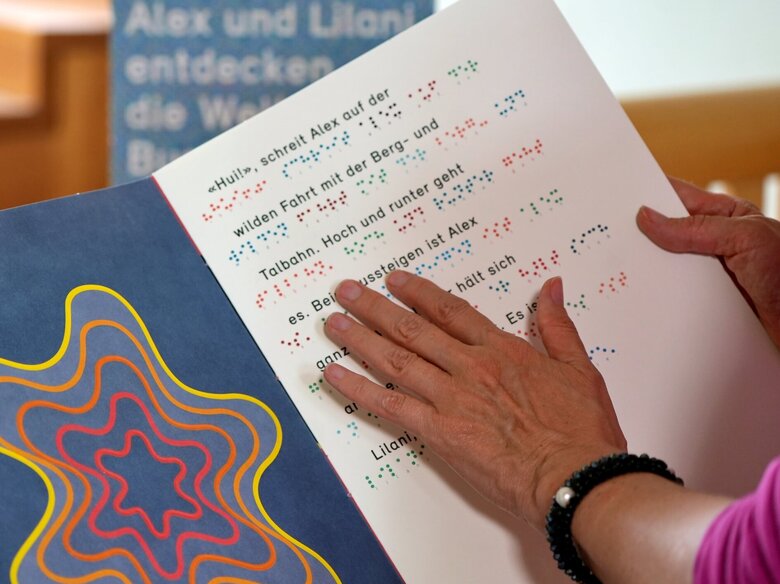 Alex und Lilani
entdecken
die Welt
«Hui!», schreit Alex auf der
wilden Fahrt mit der Berg- und
Talbahn. Hoch und runter geht
es. Beim Aussteigen ist Alex
ganz hält sich
Es
Lilani,